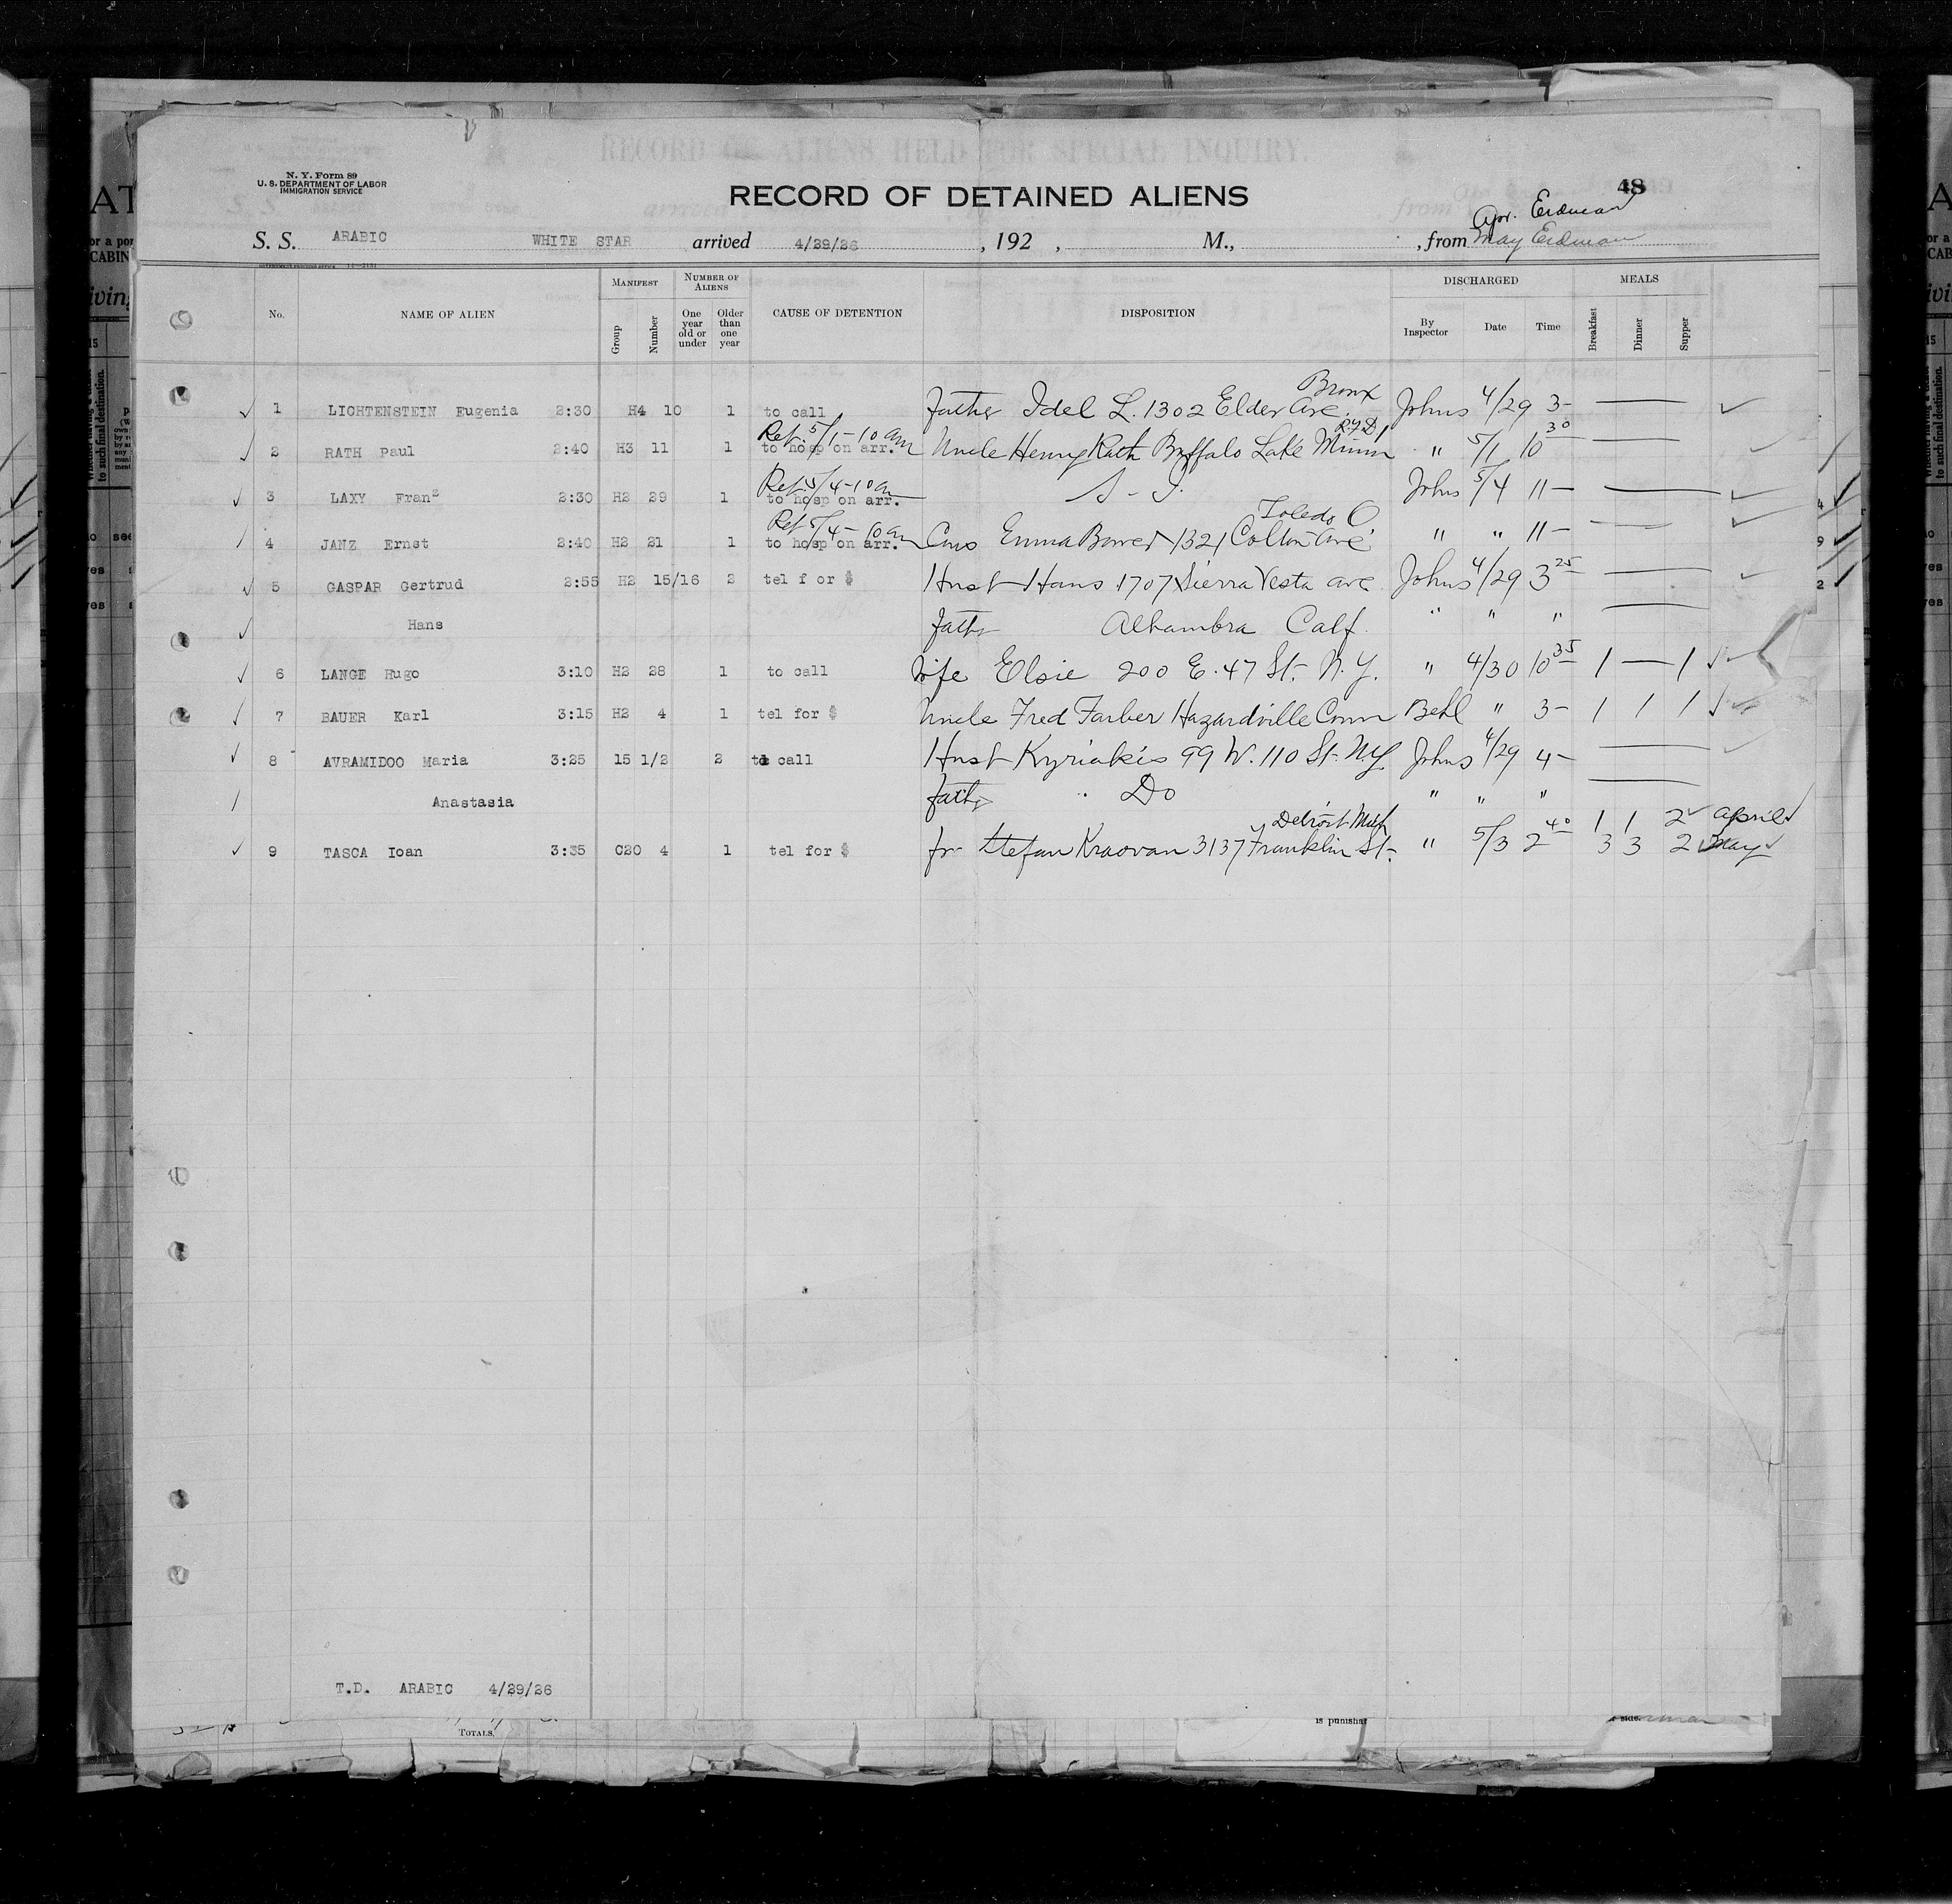 N. Y. Form 89
U. S. DEPARTMENT OF LABOR
IMMIGRATION SERVICE
RECORD OF ALIENS HELD FOR SPECIAL INQUIRY.
RECORD OF DETAINED ALIENS
48
Apr. Erdman
S. S. ARABIC WHITE STAR arrived 4/29/26, 192 , M., , from May Erdman
No. NAME OF ALIEN MANIFEST Group Number NUMBER OF ALIENS One year old or under Older than one year CAUSE OF DETENTION DISPOSITION DISCHARGED By Inspector Date Time MEALS Breakfast Dinner Supper
Bronx
1 LICHTENSTEIN Eugenia 2:30 H4 10 1 to call Father Idel L. 1302 Elder Ave. Johns 4/29 3-
Ret. 5/1-10 am R.F.D 1
2 RATH Paul 2:40 H3 11 1 to hosp on arr. Uncle Henry Rath Buffalo Lake Minn " 5/1 10 30
Ret 5/4-10 am
3 LAXY Franz 2:30 H2 29 1 to hosp on arr. S-I. Johns 5/4 11-
Ret 5/4- 10 am Toledo O
4 JANZ Ernst 2:40 H2 21 1 to hosp on arr. Emma 1321 Colton Ave " " 11-
5 GASPAR Gertrud 2:55 H2 15/16 2 tel f or $ Husb Hans 1707 Sierra Vesta ave Johns 4/29 3 25
Hans Father Alhambra Calf. " " "
6 LANGE Hugo 3:10 H2 28 1 to call Wife Elsie 200 E. 47 St. N.Y. " 4/30 10 35 1 — 1
7 BAUER Karl 3:15 H2 4 1 tel for $ Uncle Fred Farber Hazardville Conn Behl " 3- 1 1 1
8 AVRAMIDOO Maria 3:25 15 1/2 2 to call Husb Kyriakis 99 W. 110 St. N.Y. Johns 4/29 4-
Anastasia Father " Do " " "
Detroit Mich 1 1 2 April
9 TASCA Ioan 3:35 C20 4 1 tel for $ fr Stefan Kraovan 3137 Franklin St. " 5/3 2 40 3 3 2 May
T.D. ARABIC 4/29/26
TOTALS.
is punishab